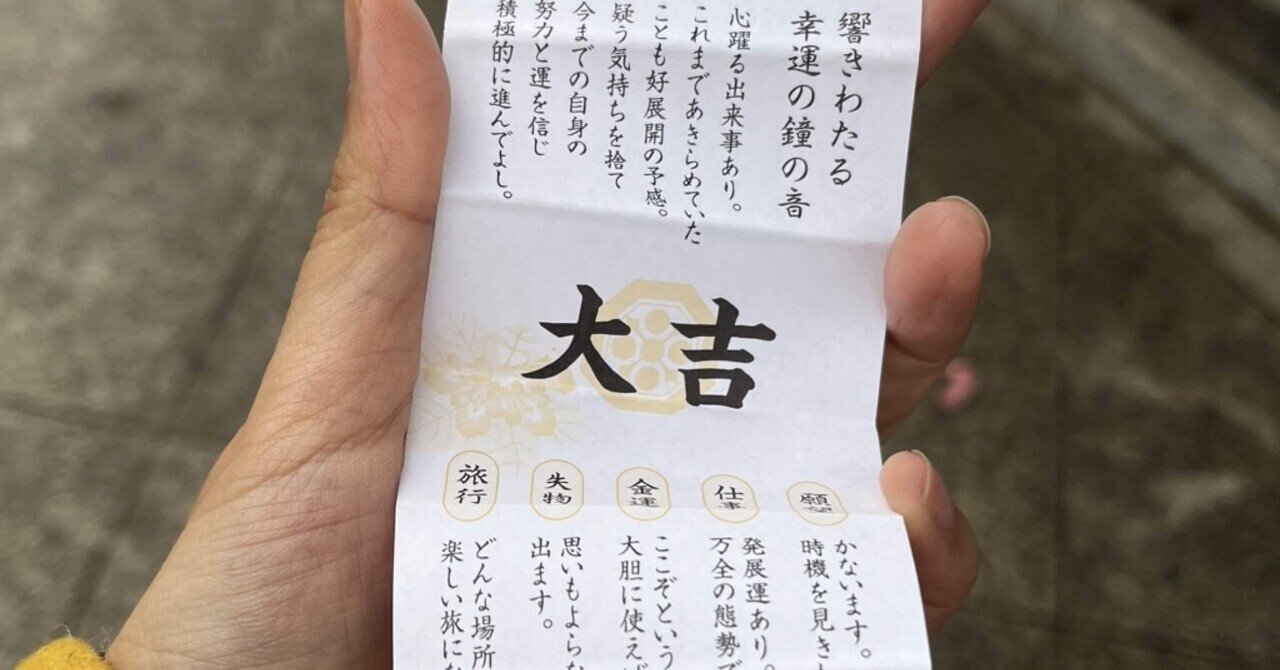 響きわたる
幸運の鐘の音
心躍る出来事あり。
これまであきらめていた
ことも好展開の予感。
疑う気持ちを捨て
今までの自身の
努力と運を信じ
積極的に進んでよし。
大吉
願望
かないます。
時機を見き
仕事
発展運あり。
万全の態勢で
金運
ここぞという
大胆に使えば
失物
思いもよらな
出ます。
旅行
どんな場所
楽しい旅にな